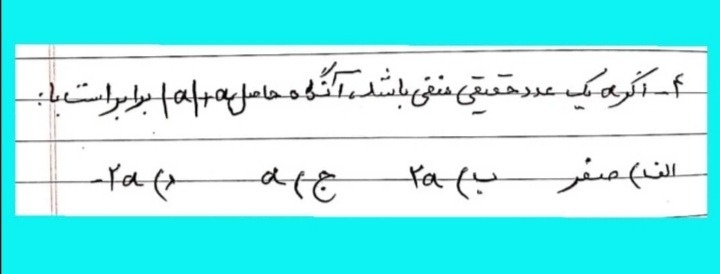 ۴- اگر a یک عدد حقیقی منفی باشد، آنگاه حاصل |a|+a برابر است با:
الف) صفر ب) ۲a ج) a د) -۲a